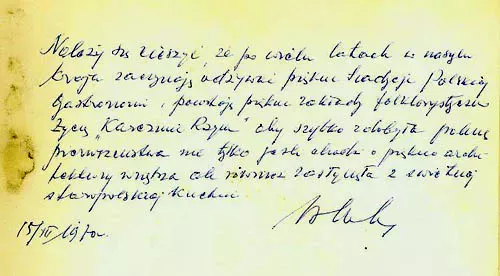 Należy się cieszyć, że po wielu latach w naszym
kraju zaczynają odżywać piękne tradycje Polskiej
Gastronomi i powstają piękne zakłady folklorystyczne
Życzę "Karczmie Rzym" aby szybko zdobyła palmę
pierwszeństwa nie tylko jeśli chodzi o piękno archi-
tektury wnętrza ale również zasłynęła z świetnej
staropolskiej Kuchni.
15/III/1970.